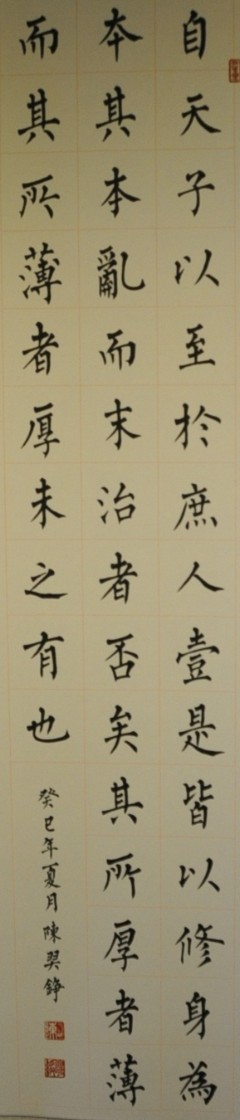 自天子以至於庶人壹是皆以修身為
本其本亂而末治者否矣其所厚者薄
而其所薄者厚未之有也
癸巳年夏月陳羿錚